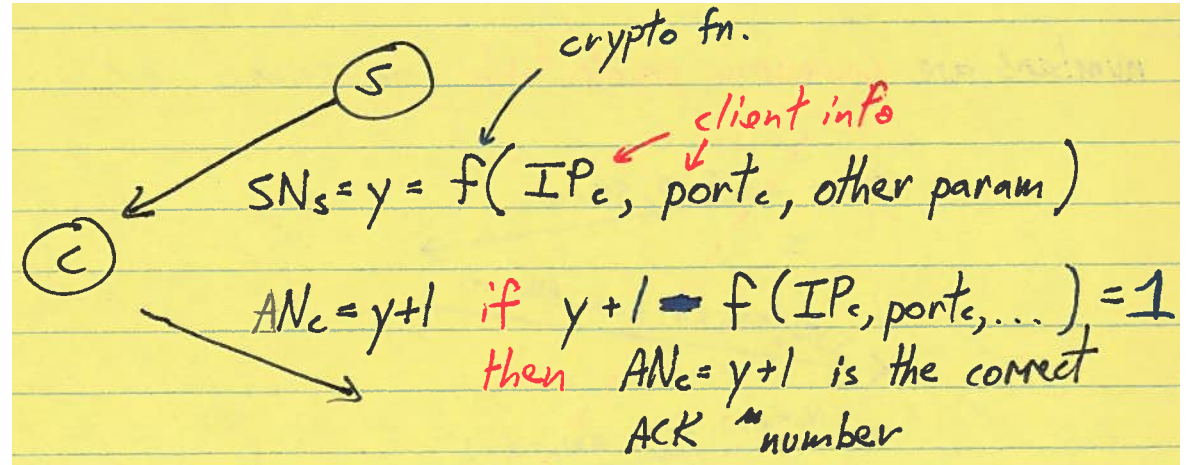 crypto fn.
S
client info
SNs = y = f( IPc, portc, other param )
C
ANc = y+1 if y+1 - f (IPc, portc, ...) = 1
then ANc = y+1 is the correct
ACK number